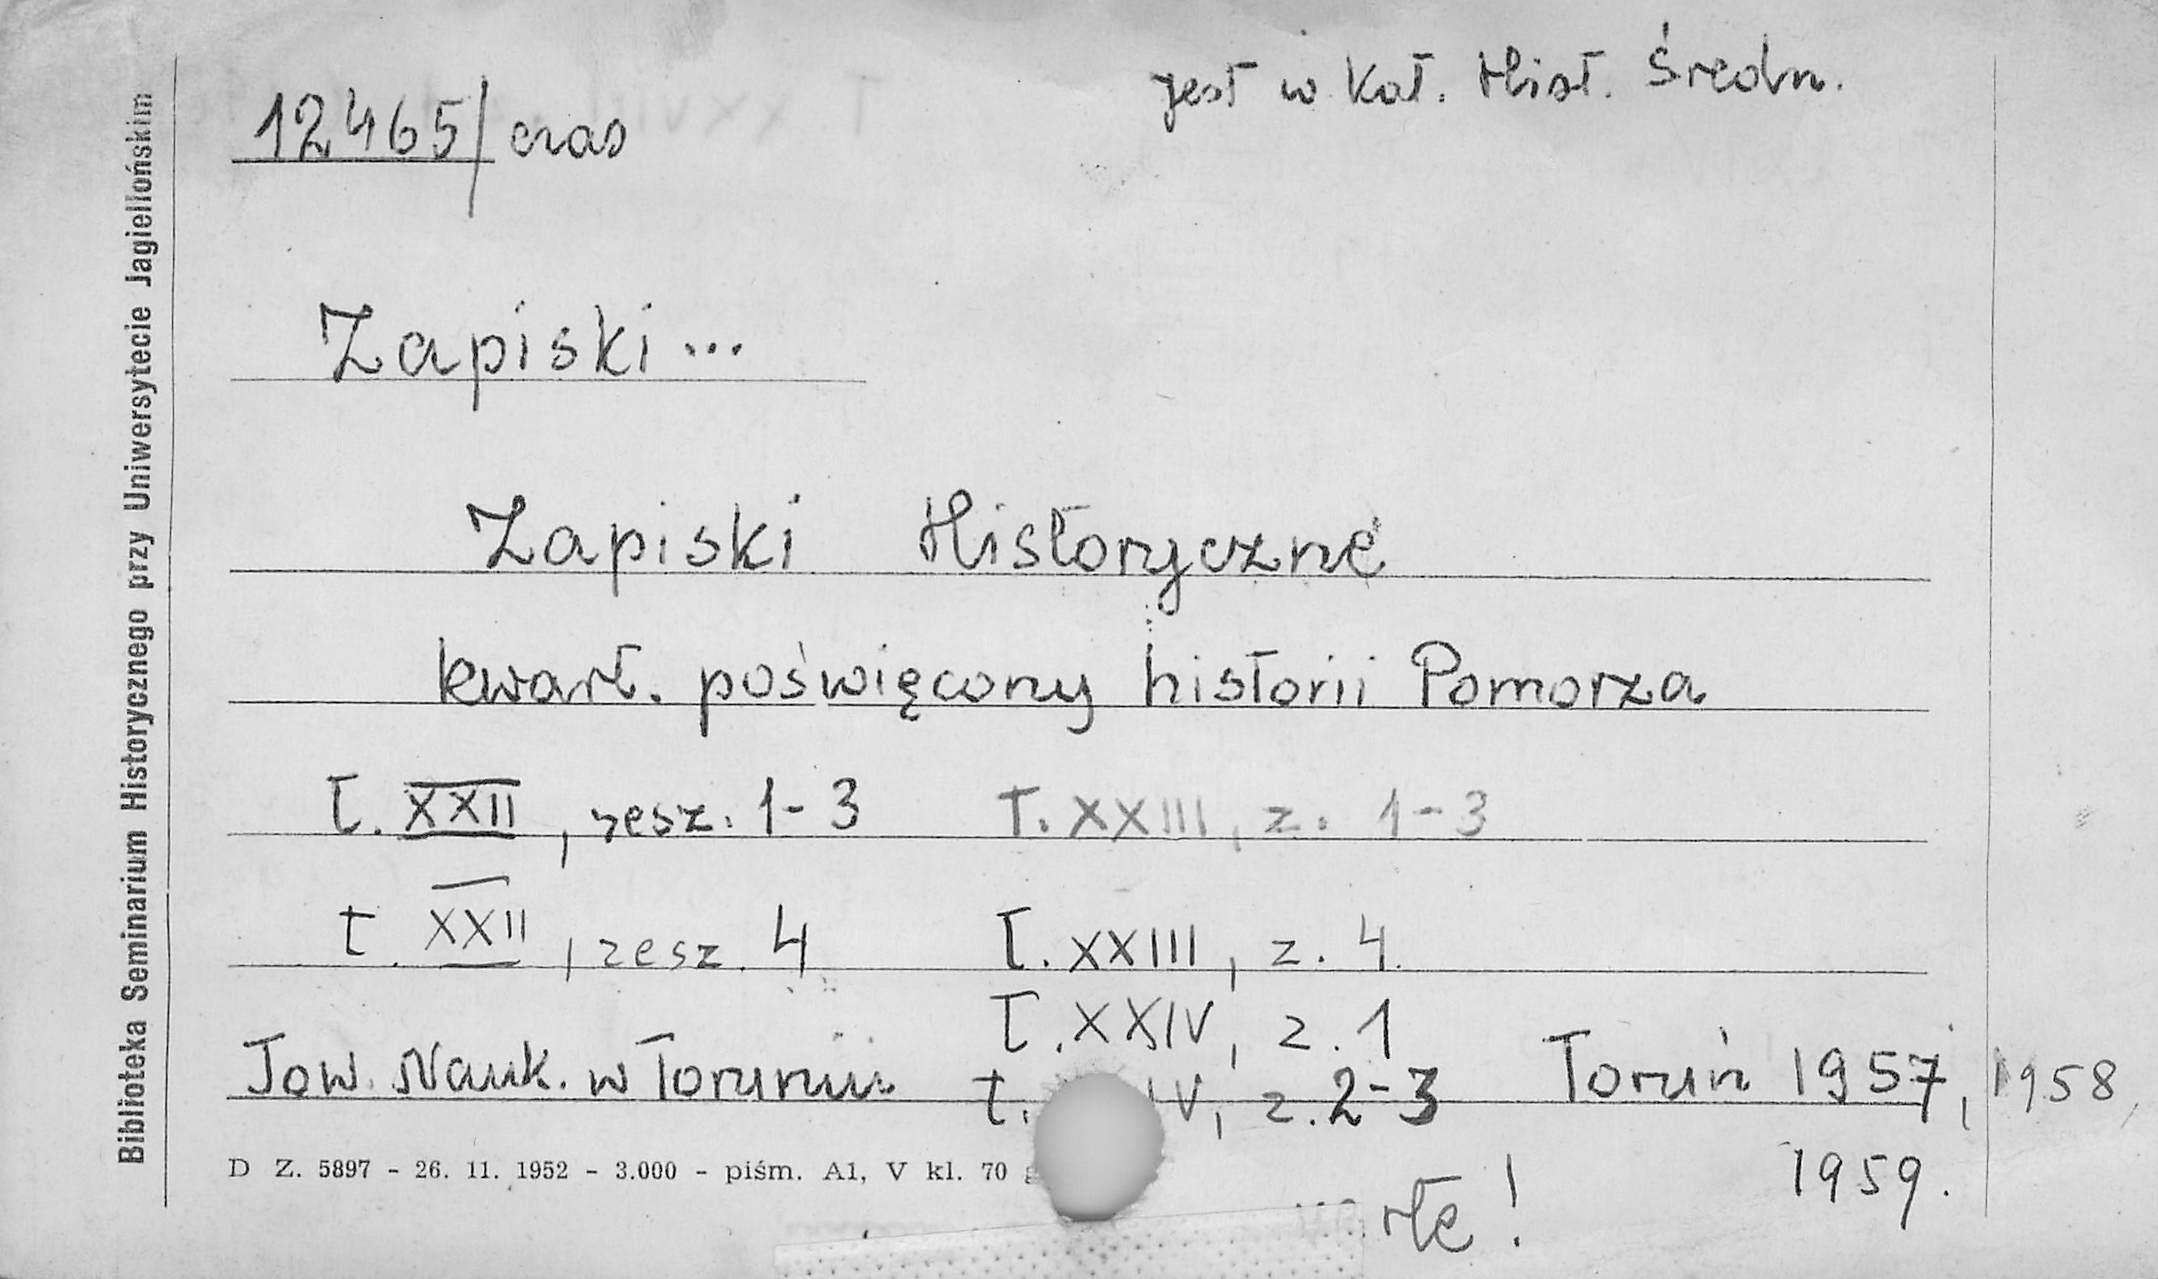 jest w Kat. Hist. Średn.
12465/czas
Zapiski...
Zapiski Historyczne
kwart. poświęcony historii Pomorza
t. XXII, zesz. 1-3 T. XXIII, z. 1-3
t. XXII, zesz. 4 t. XXIII, z. 4.
t. XXIV, z. 1
Tow. Nauk. w Toruniu t. IV, z. 2-3 Toruń 1957, 1958,
1959.
D Z. 5897 - 26. 11. 1952 - 3.000 - piśm. A1, V kl. 70
Biblioteka Seminarium Historycznego przy Uniwersytecie Jagiellońskim